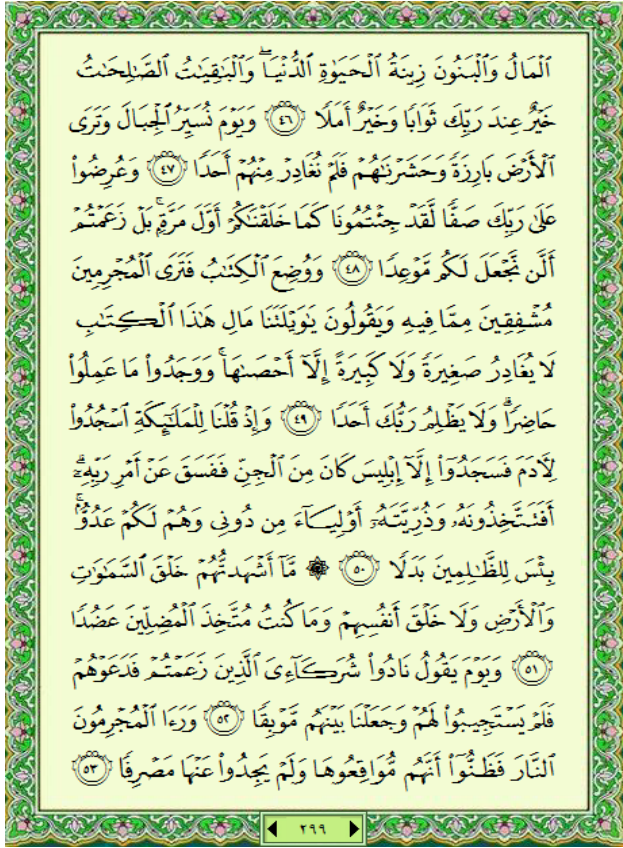 ٱلْمَالُ وَٱلْبَنُونَ زِينَةُ ٱلْحَيَوٰةِ ٱلدُّنْيَا ۖ وَٱلْبَٰقِيَٰتُ ٱلصَّٰلِحَٰتُ
خَيْرٌ عِندَ رَبِّكَ ثَوَابًا وَخَيْرٌ أَمَلًا ٤٦ وَيَوْمَ نُسَيِّرُ ٱلْجِبَالَ وَتَرَى
ٱلْأَرْضَ بَارِزَةً وَحَشَرْنَٰهُمْ فَلَمْ نُغَادِرْ مِنْهُمْ أَحَدًا ٤٧ وَعُرِضُوا۟
عَلَىٰ رَبِّكَ صَفًّا لَّقَدْ جِئْتُمُونَا كَمَا خَلَقْنَٰكُمْ أَوَّلَ مَرَّةٍۭ ۚ بَلْ زَعَمْتُمْ
أَلَّن نَّجْعَلَ لَكُم مَّوْعِدًا ٤٨ وَوُضِعَ ٱلْكِتَٰبُ فَتَرَى ٱلْمُجْرِمِينَ
مُشْفِقِينَ مِمَّا فِيهِ وَيَقُولُونَ يَٰوَيْلَتَنَا مَالِ هَٰذَا ٱلْكِتَٰبِ
لَا يُغَادِرُ صَغِيرَةً وَلَا كَبِيرَةً إِلَّآ أَحْصَىٰهَا ۚ وَوَجَدُوا۟ مَا عَمِلُوا۟
حَاضِرًا ۗ وَلَا يَظْلِمُ رَبُّكَ أَحَدًا ٤٩ وَإِذْ قُلْنَا لِلْمَلَٰٓئِكَةِ ٱسْجُدُوا۟
لِءَادَمَ فَسَجَدُوٓا۟ إِلَّآ إِبْلِيسَ كَانَ مِنَ ٱلْجِنِّ فَفَسَقَ عَنْ أَمْرِ رَبِّهِۦٓ ۗ
أَفَتَتَّخِذُونَهُۥ وَذُرِّيَّتَهُۥٓ أَوْلِيَآءَ مِن دُونِى وَهُمْ لَكُمْ عَدُوٌّۢ ۚ
بِئْسَ لِلظَّٰلِمِينَ بَدَلًا ٥٠ ۞ مَّآ أَشْهَدتُّهُمْ خَلْقَ ٱلسَّمَٰوَٰتِ
وَٱلْأَرْضِ وَلَا خَلْقَ أَنفُسِهِمْ وَمَا كُنتُ مُتَّخِذَ ٱلْمُضِلِّينَ عَضُدًا
٥١ وَيَوْمَ يَقُولُ نَادُوا۟ شُرَكَآءِىَ ٱلَّذِينَ زَعَمْتُمْ فَدَعَوْهُمْ
فَلَمْ يَسْتَجِيبُوا۟ لَهُمْ وَجَعَلْنَا بَيْنَهُم مَّوْبِقًا ٥٢ وَرَءَا ٱلْمُجْرِمُونَ
ٱلنَّارَ فَظَنُّوٓا۟ أَنَّهُم مُّوَاقِعُوهَا وَلَمْ يَجِدُوا۟ عَنْهَا مَصْرِفًا ٥٣
٢٩٩